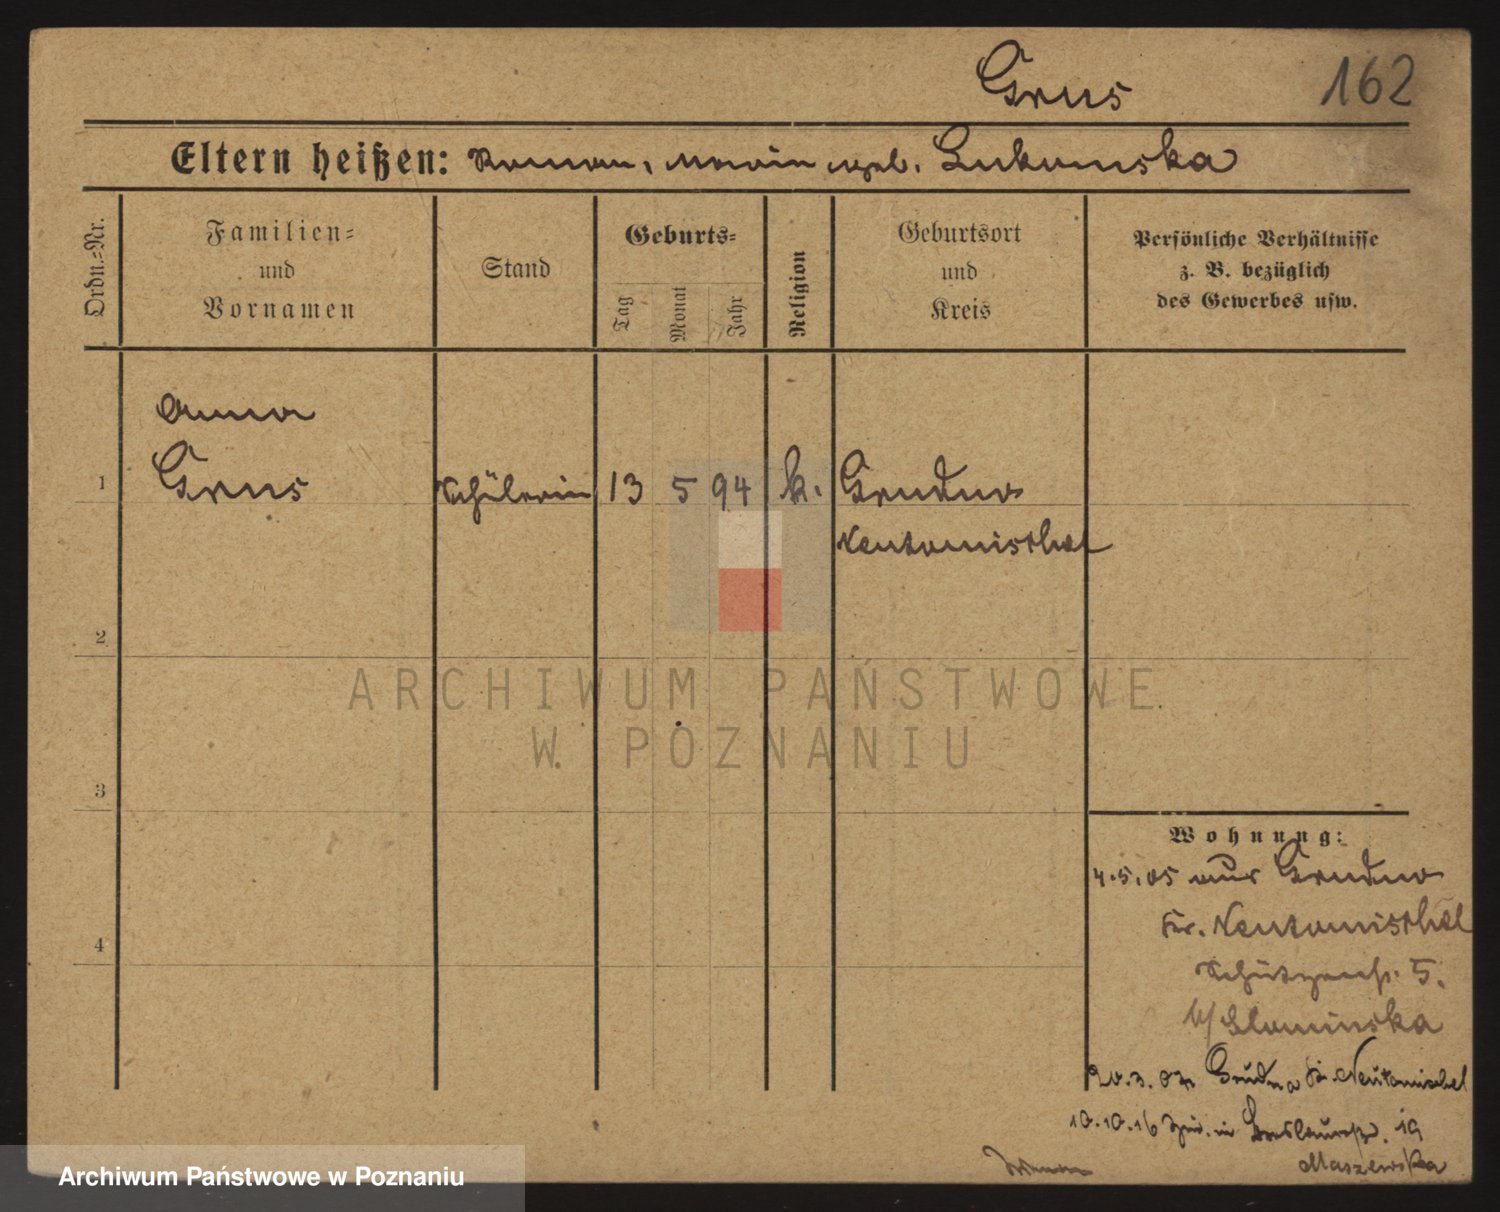 Grus 162
Eltern heißen: Roman, Maria geb. Lukomska
Ordn.-Nr.
Familien-
und
Vornamen
Stand
Geburts-
Tag
Monat
Jahr
Religion
Geburtsort
und
Kreis
Persönliche Verhältnisse
z. B. bezüglich
des Gewerbes usw.
Anna
1 Grus Schülerin 13 5 94 k. Grudno
Neutomischel
2
ARCHIWUM PAŃSTWOWE
W POZNANIU
3
Wohnung:
4.5.05 aus Grudno
Kr. Neutomischel
4
Schützenstr. 5.
b/ Slominska
20.3.07 Grudna Kr. Neutomischel
10.10.16 in Breslauerstr. 19
Maszewska
Archiwum Państwowe w Poznaniu